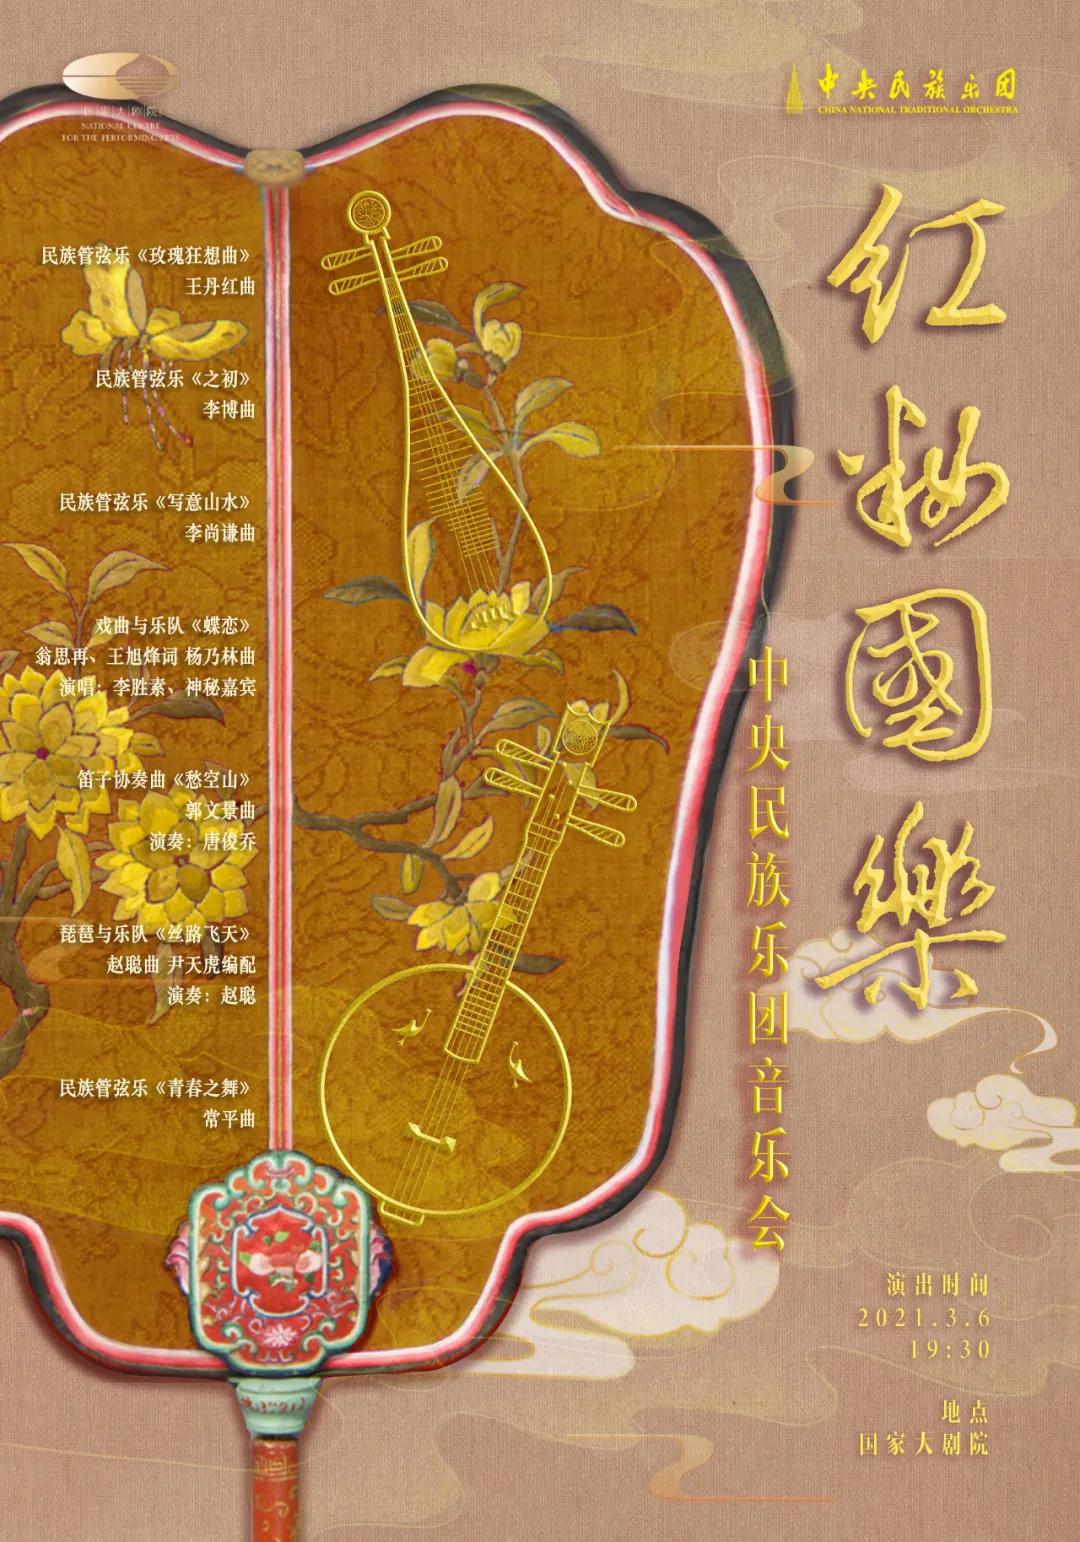 国家大剧院
NATIONAL CENTRE
FOR THE PERFORMING ARTS
中央民族乐团
CHINA NATIONAL TRADITIONAL ORCHESTRA
红妝國樂
中央民族乐团音乐会
民族管弦乐《玫瑰狂想曲》
王丹红曲
民族管弦乐《之初》
李博曲
民族管弦乐《写意山水》
李尚谦曲
戏曲与乐队《蝶恋》
翁思再、王旭烽词 杨乃林曲
演唱：李胜素、神秘嘉宾
笛子协奏曲《愁空山》
郭文景曲
演奏：唐俊乔
琵琶与乐队《丝路飞天》
赵聪曲 尹天虎编配
演奏：赵聪
民族管弦乐《青春之舞》
常平曲
演出时间
2021.3.6
19:30
地点
国家大剧院